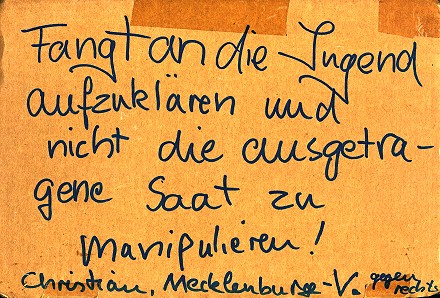 Fangt an die Jugend
aufzuklären und
nicht die ausgetra-
gene Saat zu
manipulieren!
Christian, Mecklenburg-V. gegen
rechts